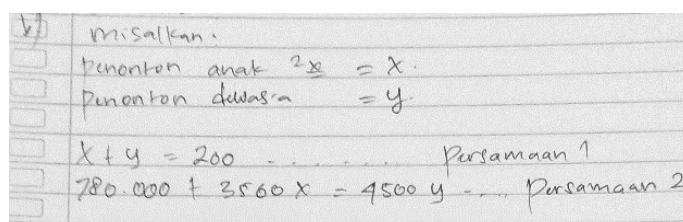 misalkan:
penonton anak 2x = x.
penonton dewasa = y.
x + y = 200 ........ Persamaan 1
780.000 + 3560 x = 4500 y .... Persamaan 2